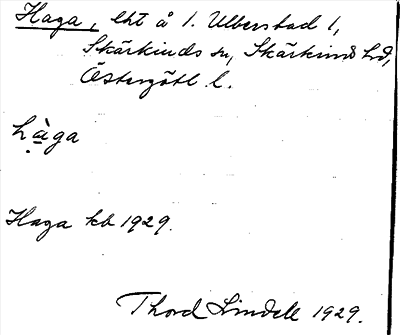 Haga, lht å 1. Ulberstad 1,
Skärkinds sn, Skärkinds hd,
Östergötl l.
hàga
Haga kb 1929.
Thord Lindell 1929.